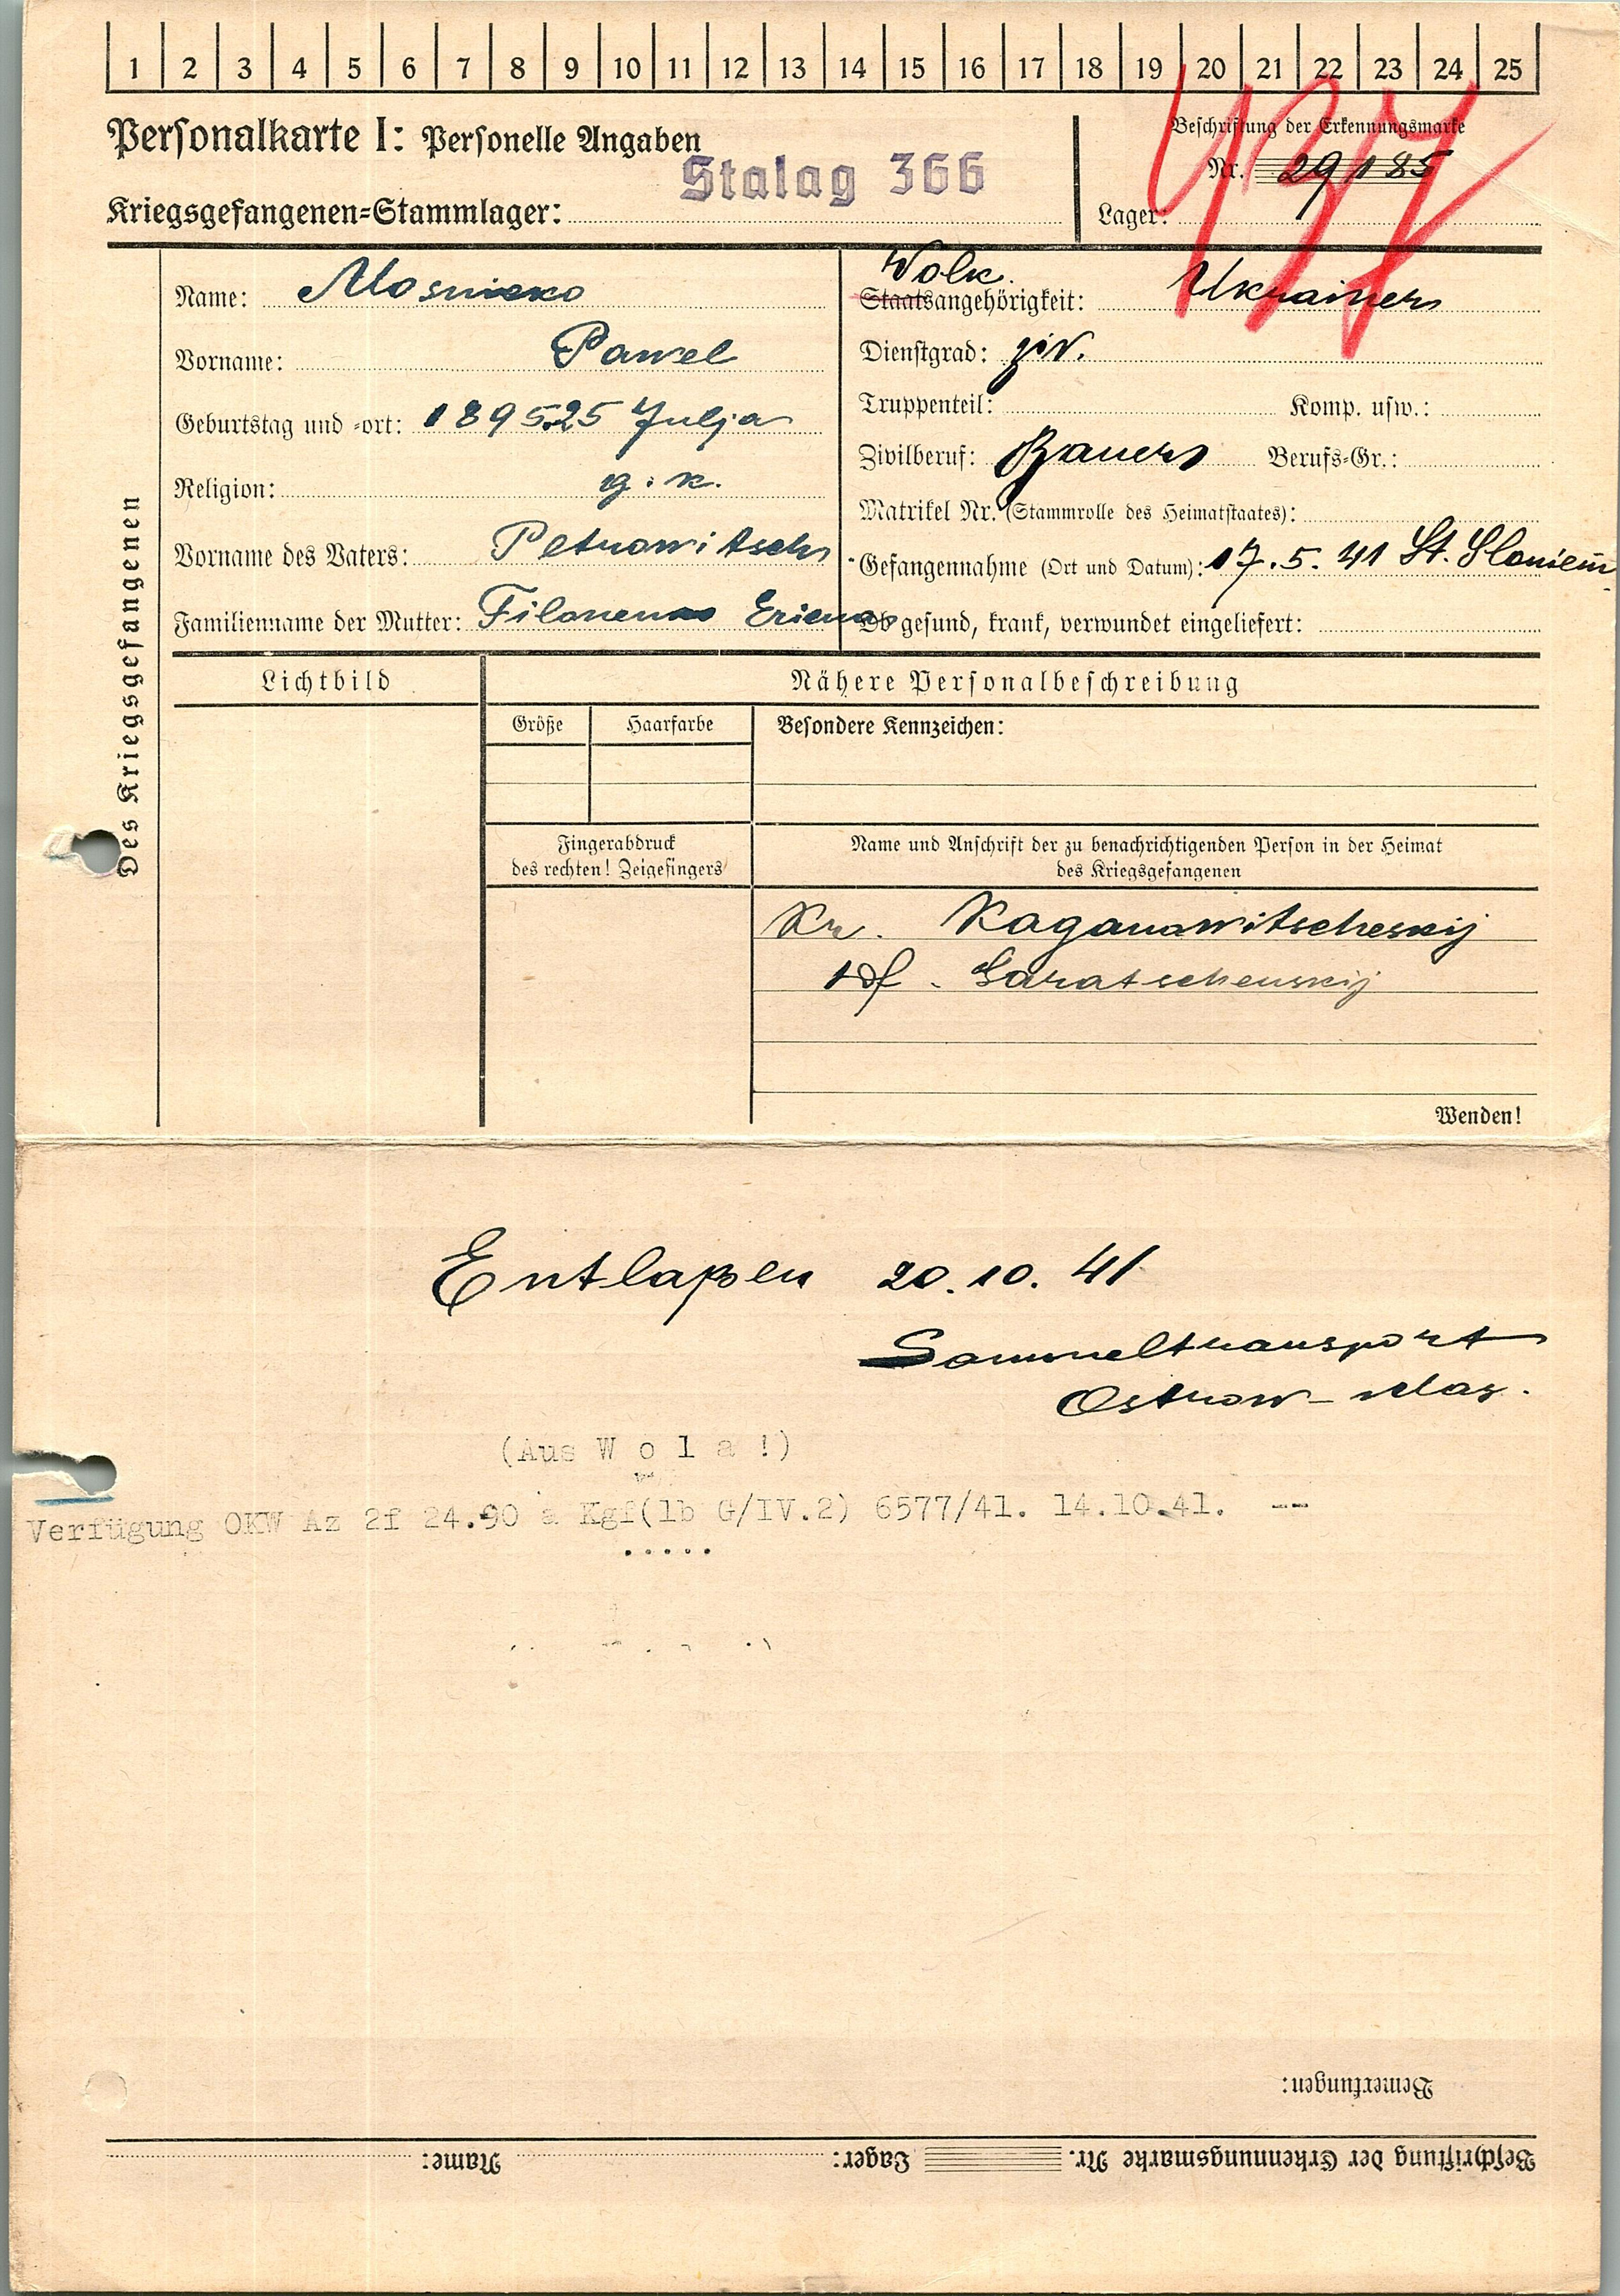 1 2 3 4 5 6 7 8 9 10 11 12 13 14 15 16 17 18 19 20 21 22 23 24 25
437
Personalkarte I: Personelle Angaben
Stalag 366
Kriegsgefangenen-Stammlager:
Beschriftung der Erkennungsmarke
Nr. 29185
Lager:
Des Kriegsgefangenen
Name:
Vorname: Pawel
Geburtstag und -ort: 1895.25 Julja
Religion: g. k.
Vorname des Vaters: Petrowitsch
Familienname der Mutter: Filonenko
Volk.
Staatsangehörigkeit: Ukrainer
Dienstgrad: ziv.
Truppenteil: Komp. usw.:
Zivilberuf: Bauer Berufs-Gr.:
Matrikel Nr. (Stammrolle des Heimatstaates):
Gefangennahme (Ort und Datum): 17.5.41 St. Sloniem
Ob gesund, krank, verwundet eingeliefert:
Lichtbild
Nähere Personalbeschreibung
Größe Haarfarbe Besondere Kennzeichen:
Fingerabdruck
des rechten! Zeigefingers
Name und Anschrift der zu benachrichtigenden Person in der Heimat
des Kriegsgefangenen
Kr. Kaganawitscheskij
Wenden!
Entlaßen 20.10.41
Sammeltransport
Ostrow-Maz.
(Aus W o l a !)
Verfügung OKW Az 2f 24.90 a Kgf(1b G/IV.2) 6577/41. 14.10.41. --
Bemerkungen:
Beschriftung der Erkennungsmarke Nr. Lager: Name: